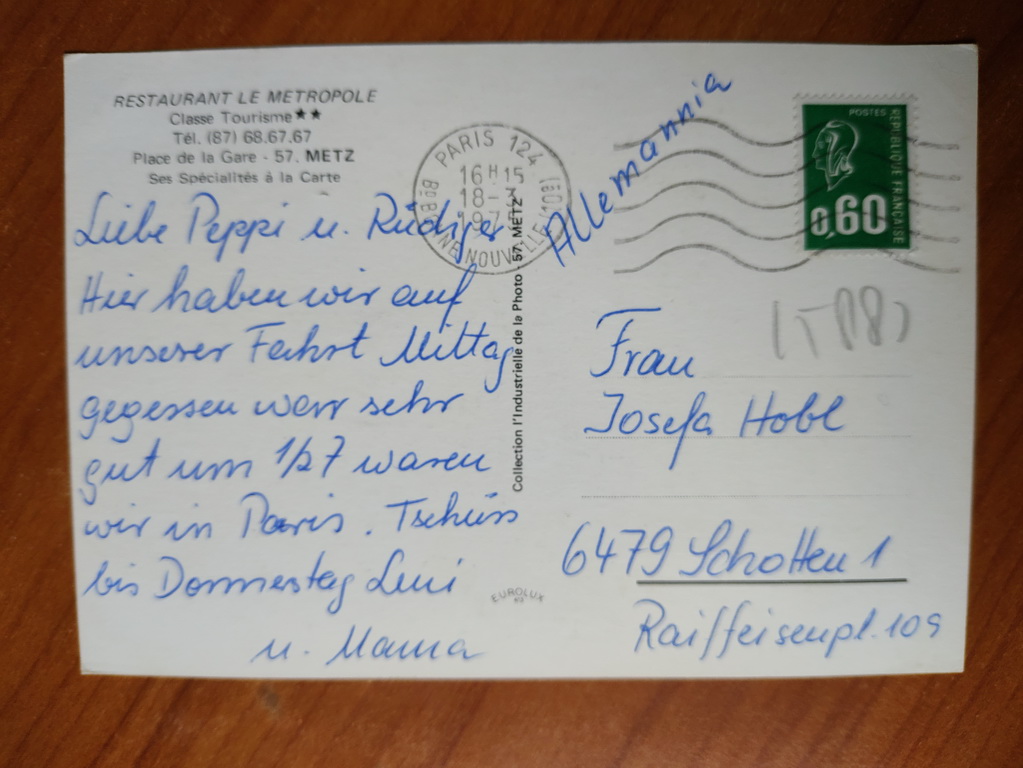 RESTAURANT LE METROPOLE
Classe Tourisme★★
Tél. (87) 68.67.67
Place de la Gare - 57. METZ
Ses Spécialités á la Carte
Liebe Peppi u. Rüdiger
Hier haben wir auf
unserer Fahrt Mittag
gegessen war sehr
gut um 1/2 7 waren
wir in Paris. Tschüss
bis Donnerstag Leni
u. Mama
PARIS 124
16H15
18-3
1975
BD BONNE NOUVELLE (10E)
Collection l'Industrielle de la Photo - 57. METZ
EUROLUX
Allemannia
POSTES
REPUBLIQUE FRANÇAISE
0,60
Frau
Josefa Hobl
6479 Schotten 1
Raiffeisenpl. 109